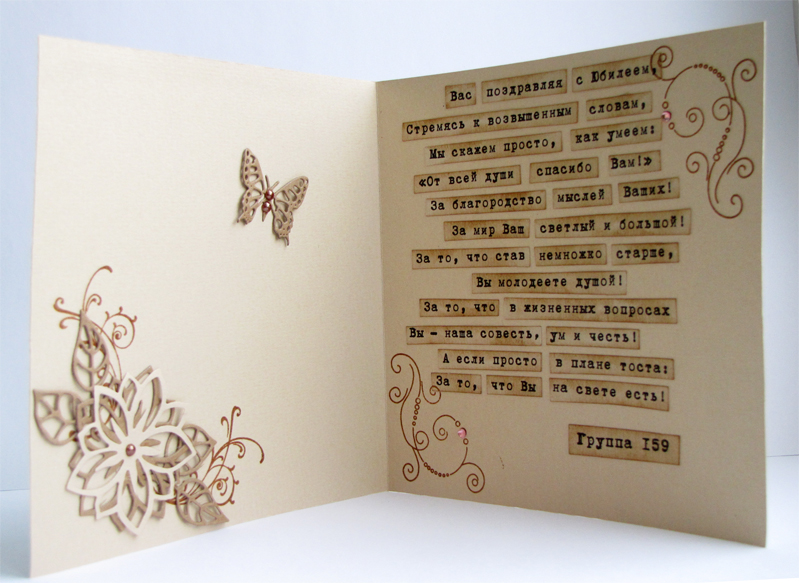 Вас поздравляя с Юбилеем,
Стремясь к возвышенным словам,
Мы скажем просто, как умеем:
«От всей души спасибо Вам!»
За благородство мыслей Ваших!
За мир Ваш светлый и большой!
За то, что став немножко старше,
Вы молодеете душой!
За то, что в жизненных вопросах
Вы – наша совесть, ум и честь!
А если просто в плане тоста:
За то, что Вы на свете есть!
Группа 159